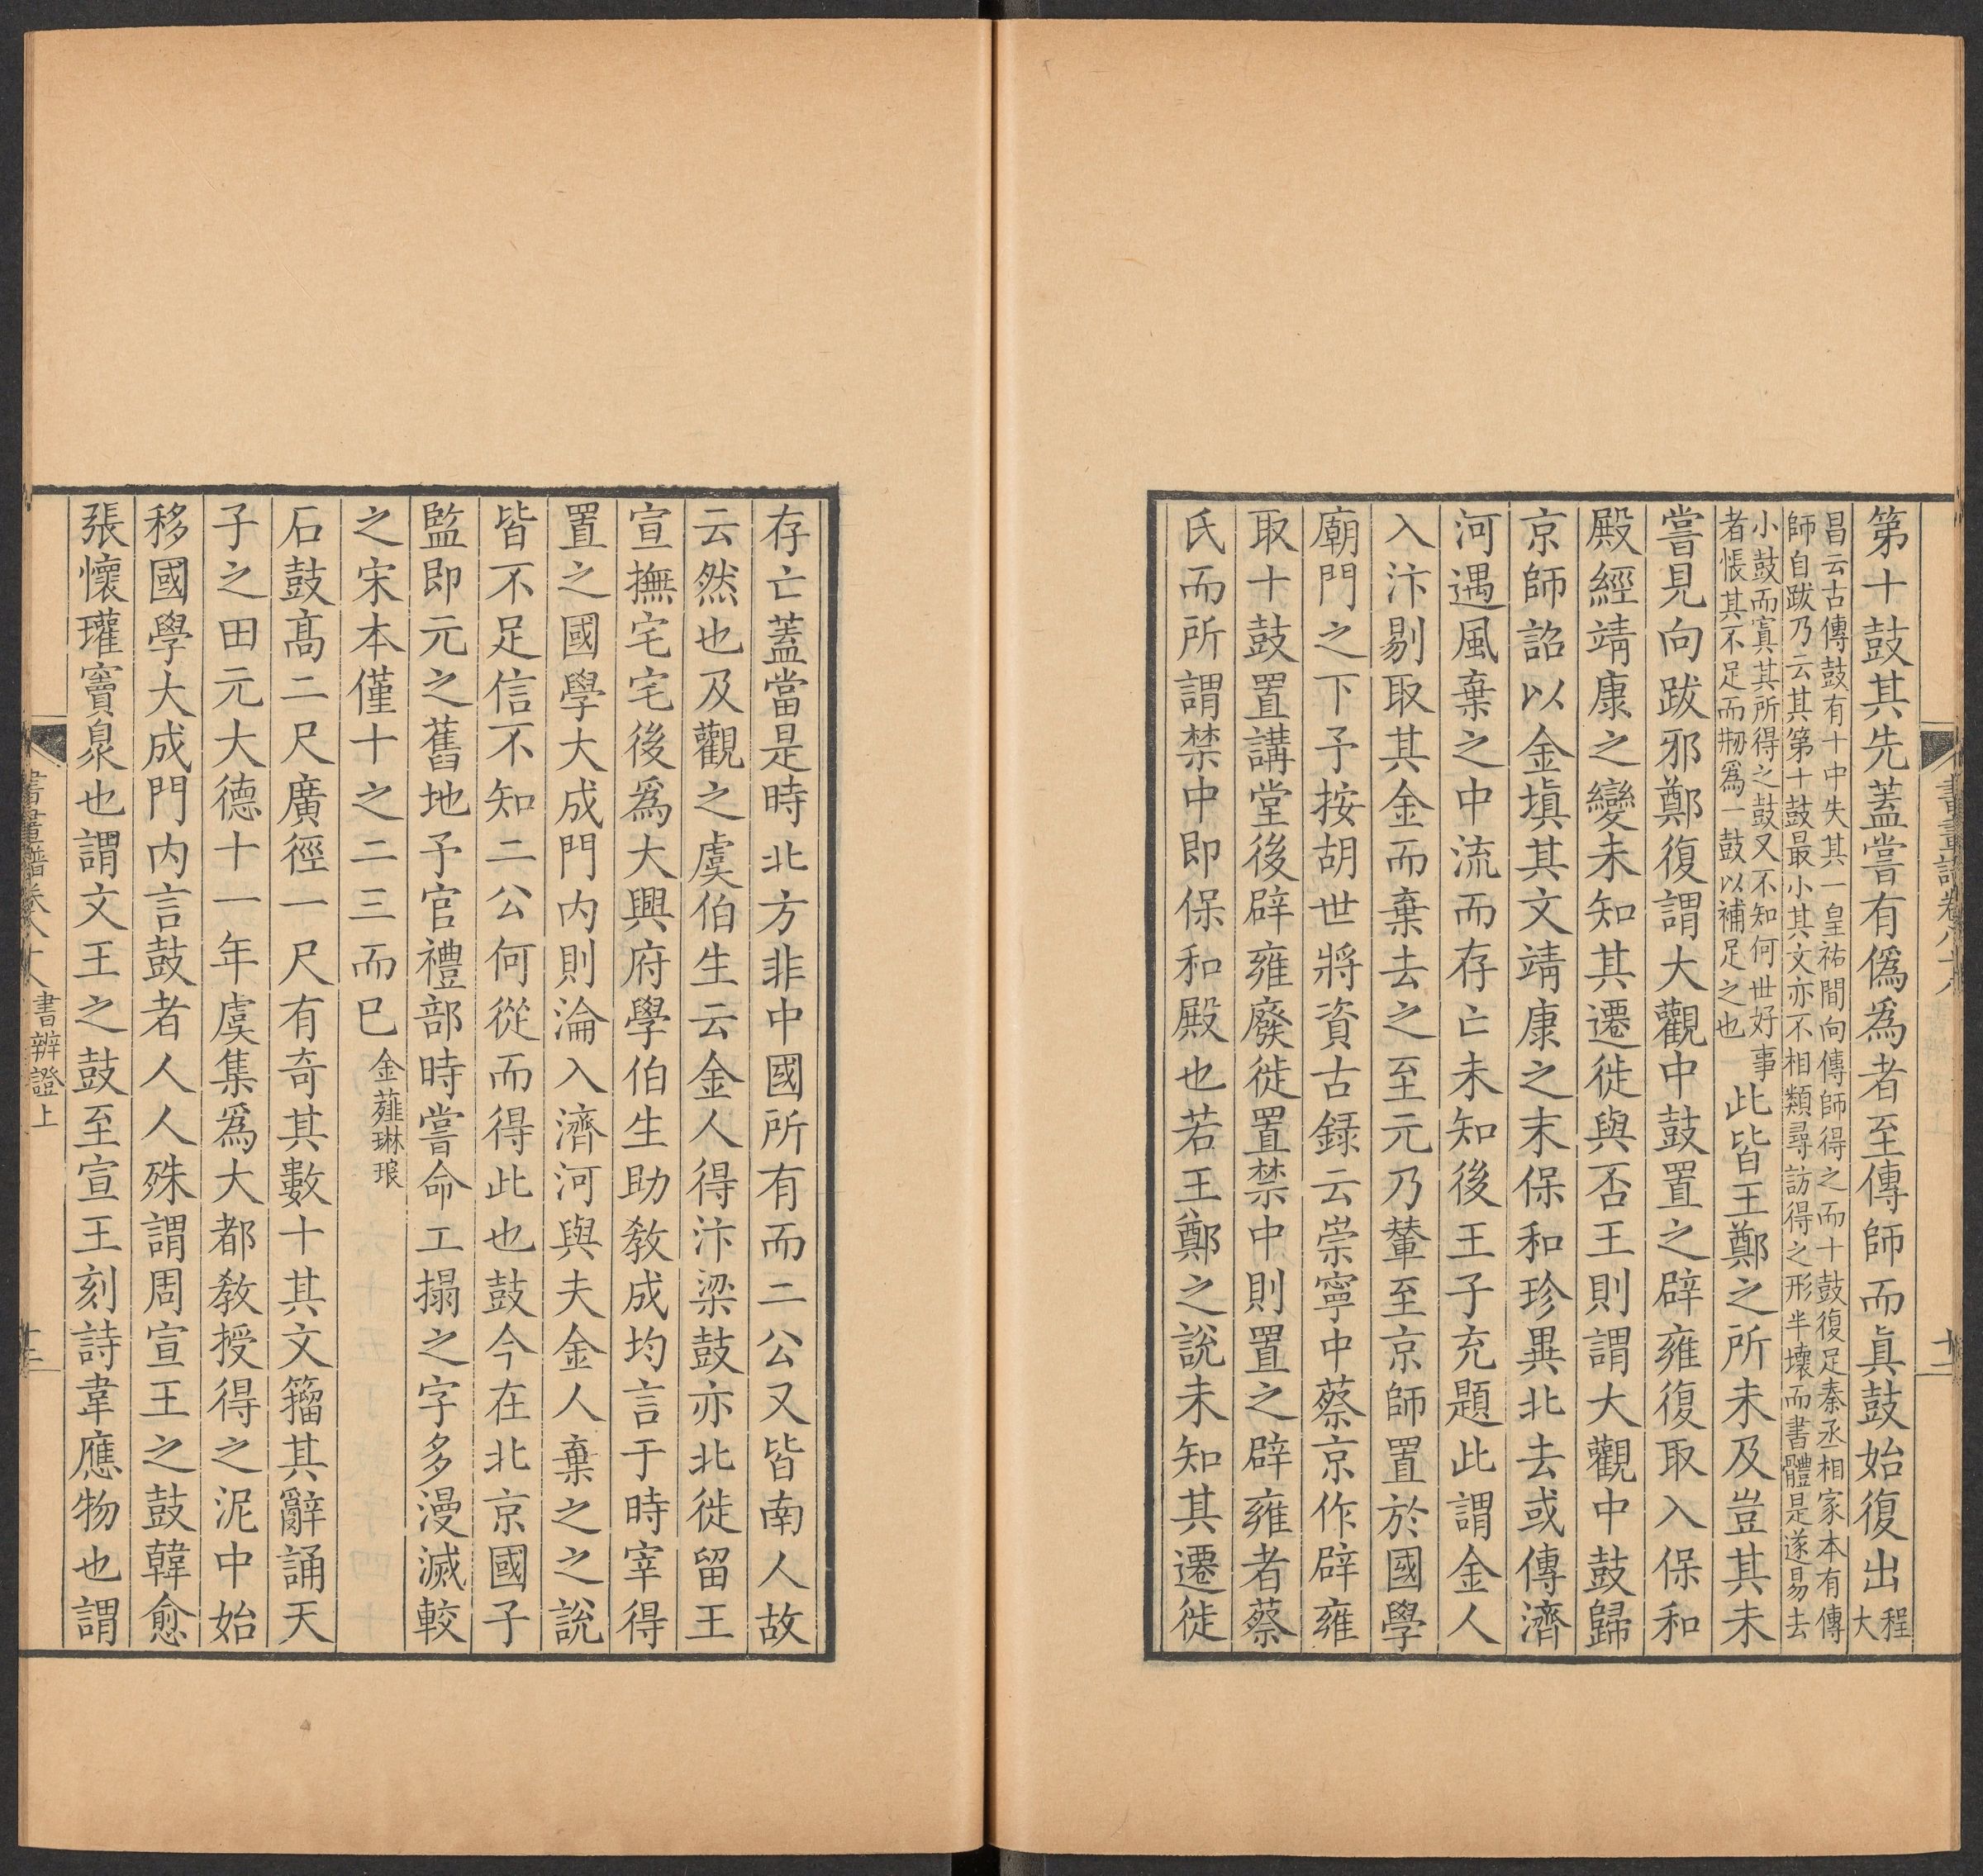 第十鼓其先蓋嘗有僞爲者至傳師而眞鼓始復出程大
昌云古傳鼓有十中失其一皇祐間向傳師得之而十鼓復足秦丞相家本有傳
師自跋乃云其第十鼓最小其文亦不相類尋訪得之形半壞而書體是遂易去
小鼓而寘其所得之鼓又不知何世好事
者悵其不足而剏爲一鼓以補足之也
此皆王鄭之所未及豈其未
嘗見向跋邪鄭復謂大觀中鼓置之辟雍復取入保和
殿經靖康之變未知其遷徙與否王則謂大觀中鼓歸
京師詔以金塡其文靖康之末保和珍異北去或傳濟
河遇風棄之中流而存亡未知後王子充題此謂金人
入汴剔取其金而棄去之至元乃輦至京師置於國學
廟門之下予按胡世將資古録云崇寧中蔡京作辟雍
取十鼓置講堂後辟雍廢徙置禁中則置之辟雍者蔡
氏而所謂禁中即保和殿也若王鄭之說未知其遷徙
存亡蓋當是時北方非中國所有而二公又皆南人故
云然也及觀之虞伯生云金人得汴梁鼓亦北徙留王
宣撫宅宅後爲大興府學伯生助敎成均言于時宰得
置之國學大成門内則淪入濟河與夫金人棄之之說
皆不足信不知二公何從而得此也鼓今在北京國子
監即元之舊地予官禮部時嘗命工搨之字多漫滅較
之宋本僅十之二三而已 金薤琳琅
石鼓髙二尺廣徑一尺有奇其數十其文籀其辭誦天
子之田元大德十一年虞集爲大都敎授得之泥中始
移國學大成門内言鼓者人人殊謂周宣王之鼓韓愈
張懷瓘竇臮也謂文王之鼓至宣王刻詩韋應物也謂
書畫譜卷八十八 書辨證上